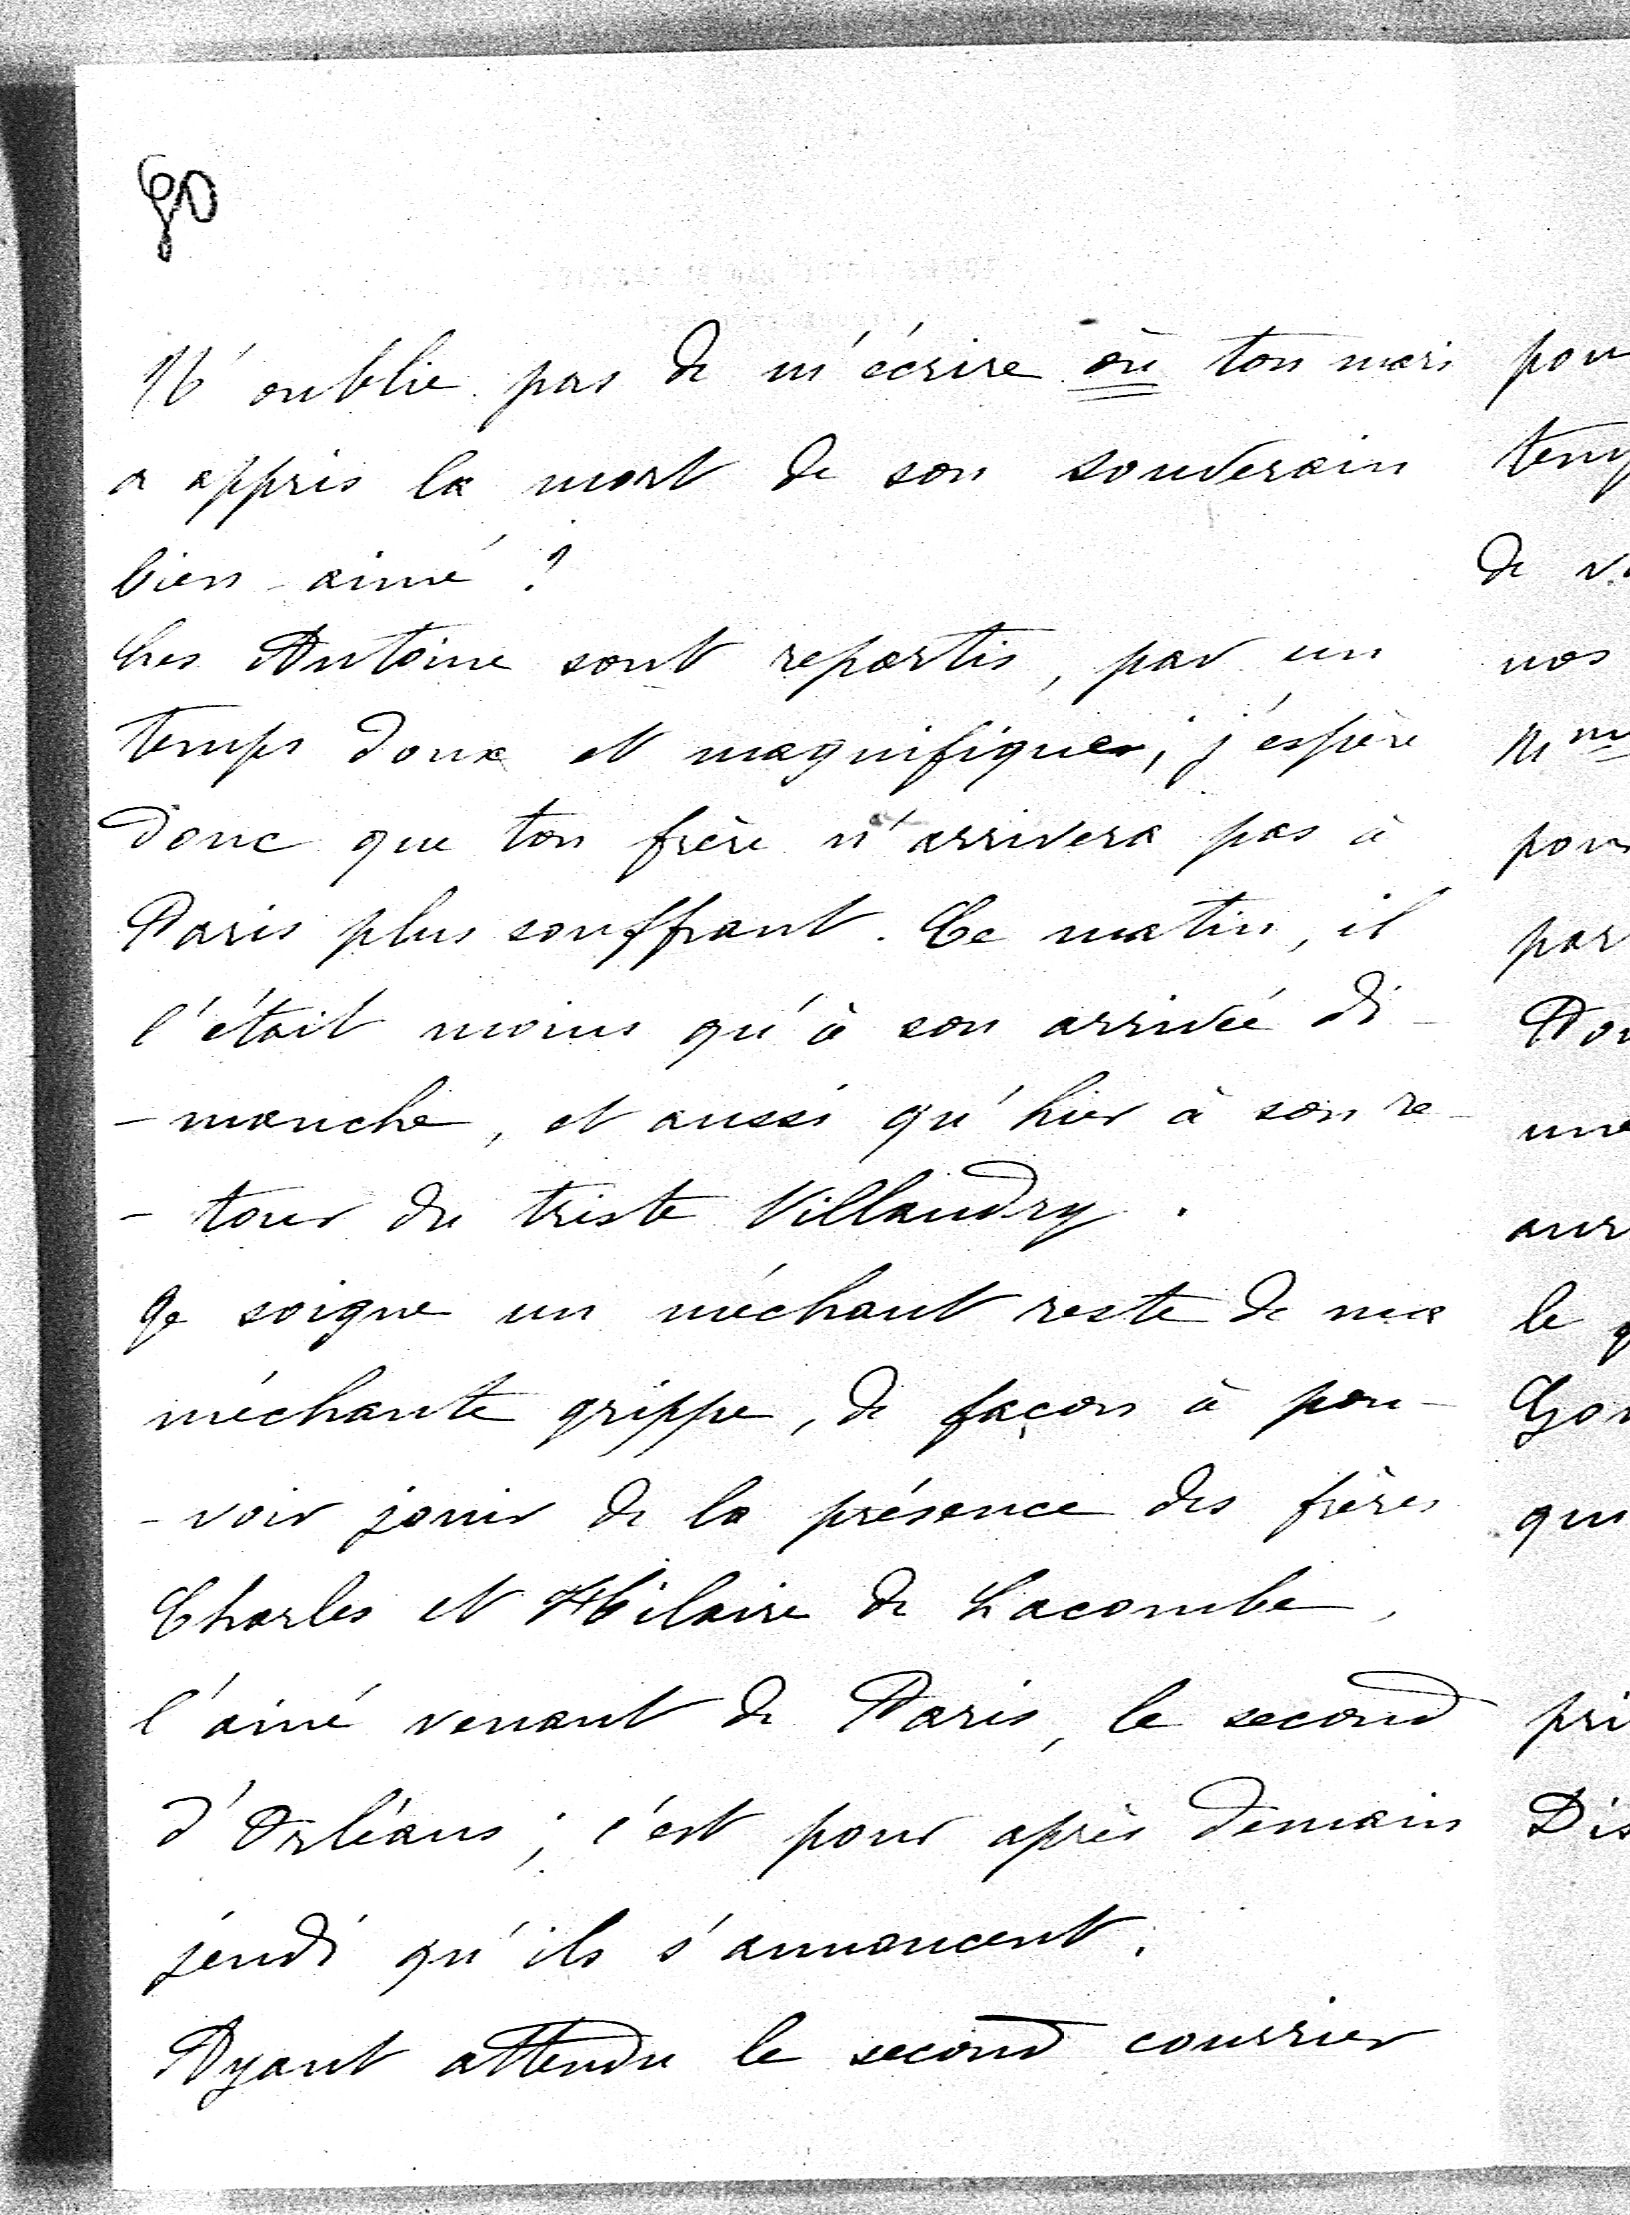 N'oublie pas de m'écrire où ton mari
a appris la mort de son souverain
bien-aimé ?
Les Antoine sont repartis, par un
temps doux et magnifique, j'espère
donc que ton frère n'arrivera pas à
Paris plus souffrant. Ce matin, il
l'était moins qu'à son arrivée di-
-manche, et aussi qu'hier à son re-
-tour du triste Villandry.
Je soigne un méchant reste de ma
méchante grippe, de façon à pou-
-voir jouir de la présence des frères
Charles et Hilaire de Lacombe,
l'ainé venant de Paris, le second
d'Orléans ; c'est pour après demain
jeudi qu'ils s'annoncent.
Ayant attendu le second courrier
pou
temp
de v
nos
pour
par
une
aur
le
qui
pri
Dis